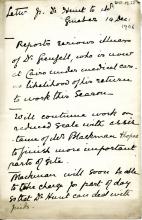 Letter fr. Dr. Hunt to Mr.
Quibell 10 Dec.
1906
- Reports serious illness
of Dr. Grenfell, who is now
at Cairo under medical care.
no likelihood of his return
to work this Season.
- Will continue work on
reduced scale with assis
tance of Mr. Blackman. Hopes
to finish more important
parts of site.
Blackman will soon be able
to take charge for part of day
so that Dr Hunt can deal with
finds.